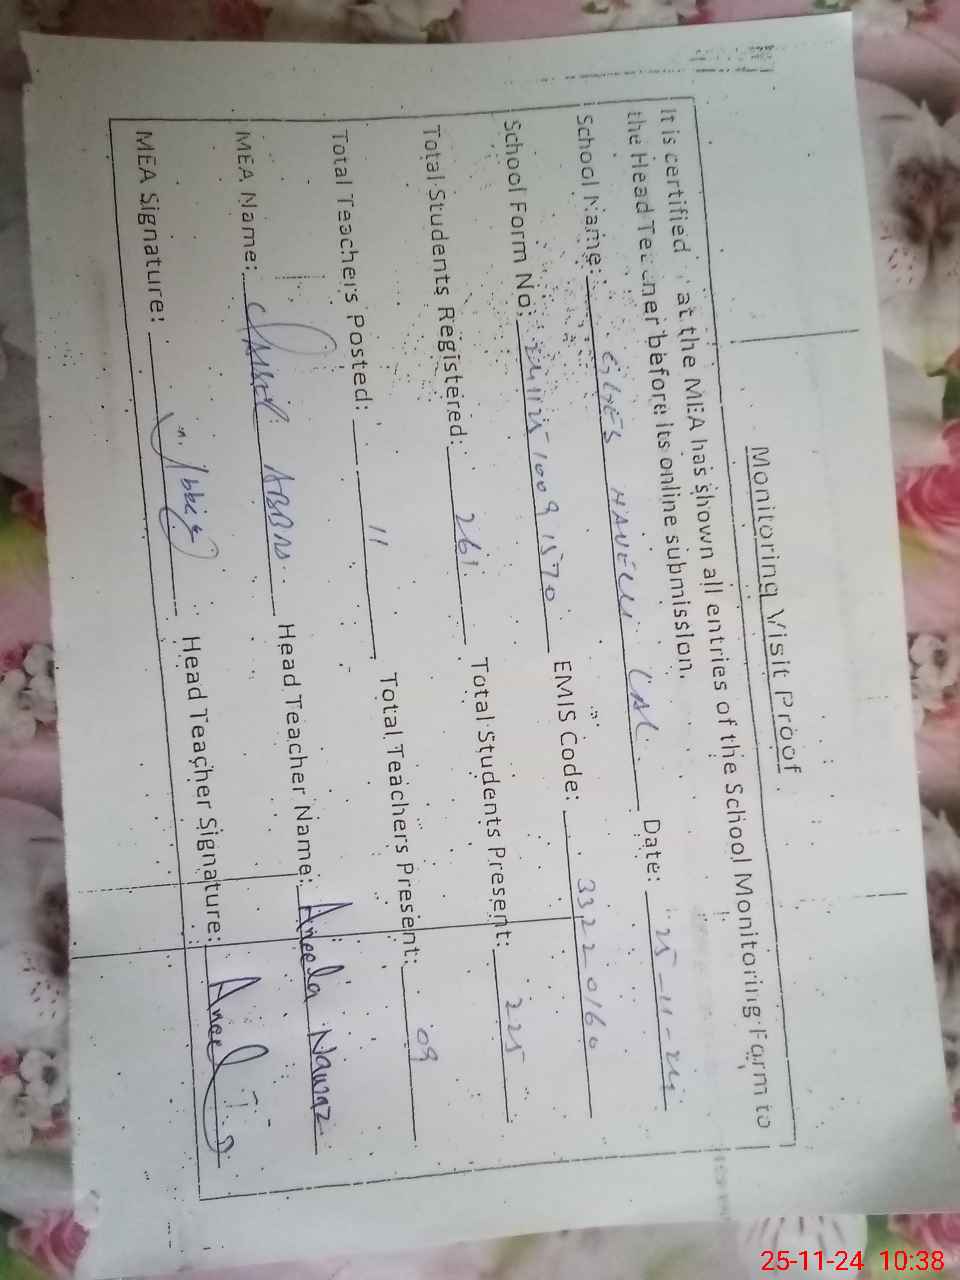 Monitoring Visit Proof
It is certified at the MEA has shown all entries of the School Monitoring Form to
the Head Teacher before its online submission.
School Name: GGES HAVELI LAL Date: 25-11-24
School Form No: 1009 1570 EMIS Code: 33220160
Total Students Registered: 261 Total Students Present: 225
Total Teachers Posted: 11 Total Teachers Present: 09
MEA Name: ABBAS Head Teacher Name: Aneela Nawaz
MEA Signature: Head Teacher Signature:
25-11-24 10:38